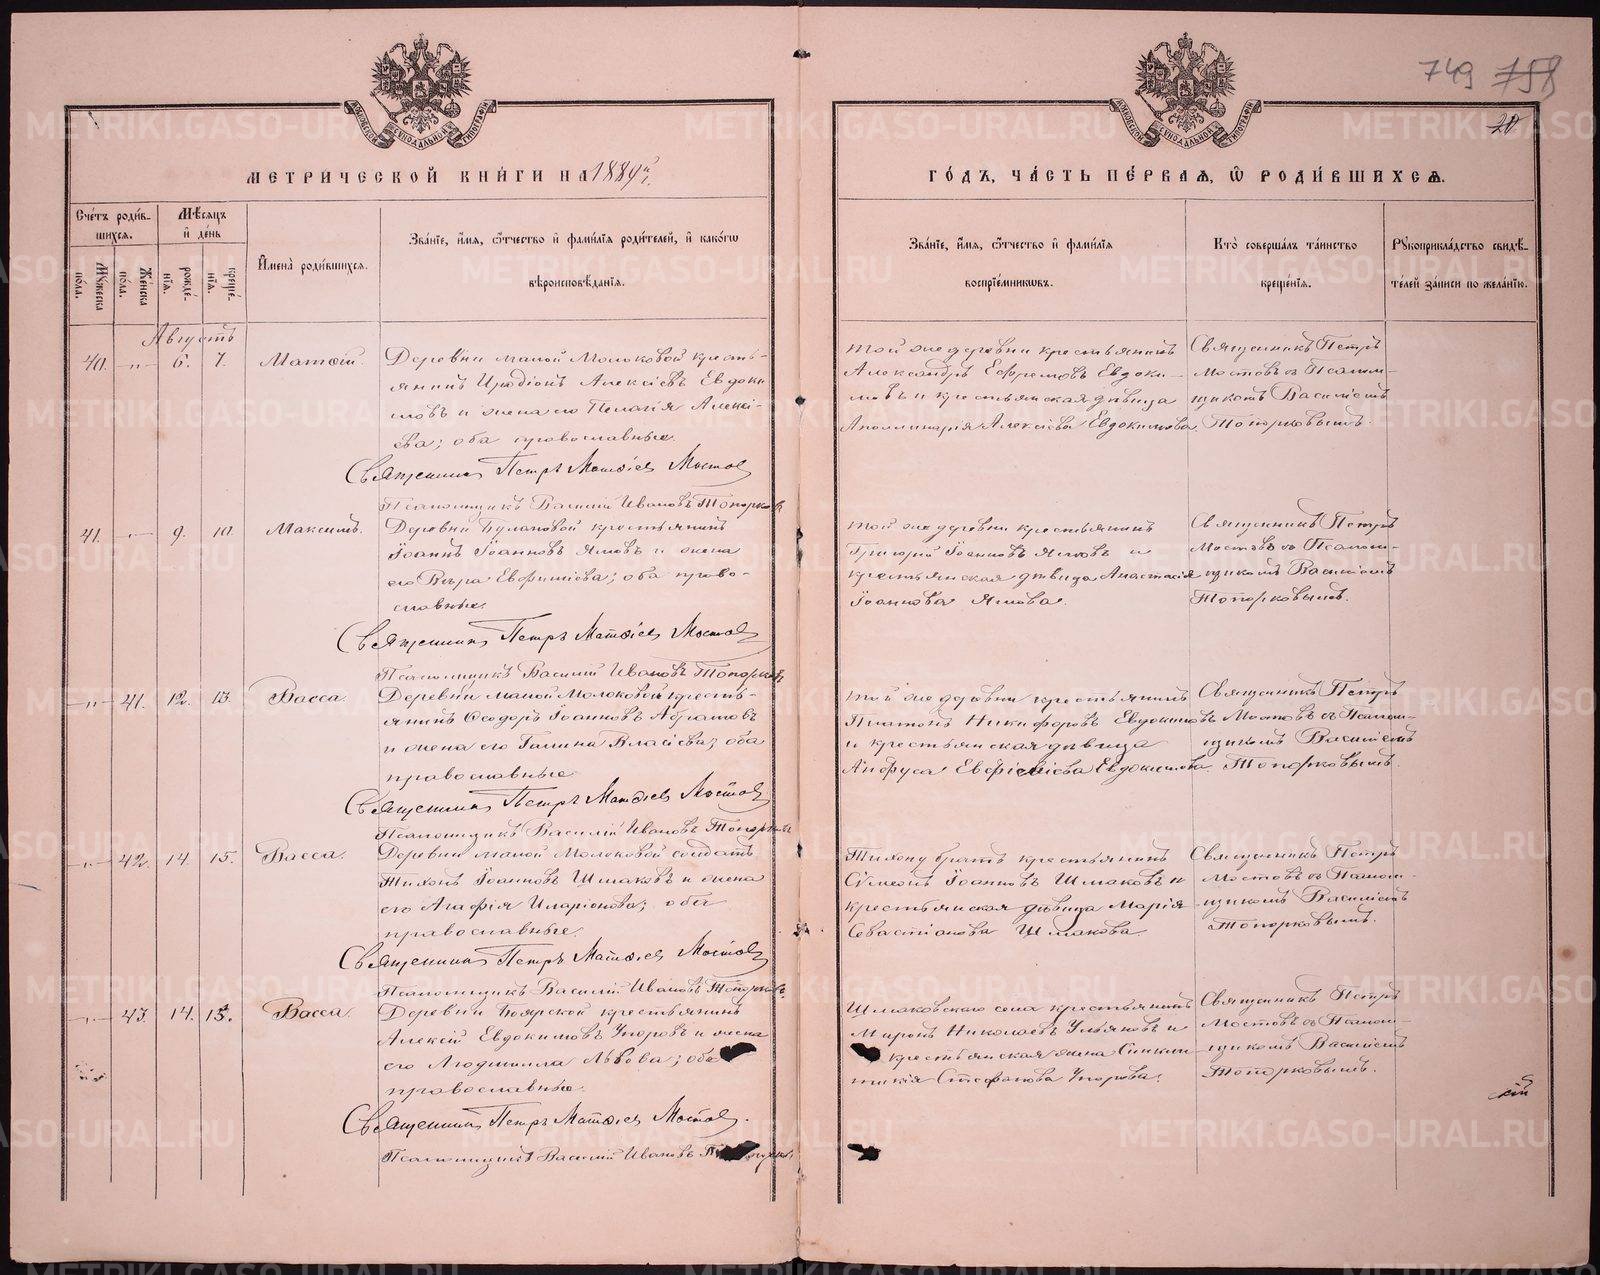 749 758
20
МОСКОВСКОЙ СѴНОДАЛЬНОЙ ТИПОГРАФІИ
МОСКОВСКОЙ СѴНОДАЛЬНОЙ ТИПОГРАФІИ
МЕТРИЧЕСКОЙ КНИГИ НА 1889й г.
ГОДЪ, ЧАСТЬ ПЕРВАЯ, Ѡ РОДИВШИХСЯ.
Счетъ родившихся.
Мужеска пола.
Женска пола.
Мѣсяцъ и день
рожденія.
крещенія.
Имена родившихся.
Званіе, имя, отчество и фамилія родителей, и какого
вѣроисповѣданія.
Званіе, имя, отчество и фамилія
воспріемниковъ.
Кто совершалъ таинство
крещенія.
Рукоприкладство свидѣ-
телей записи по желанію.
Августъ
40. -"- 6. 7. Матѳій.
Деревни малой Молоковой кресть-
янинъ Иродіонъ Алексіевъ Евдоки
мовъ и жена его Пелагія Алексі-
ева; оба православные.
Священникъ Петръ Матѳіев Мостов
Псаломщикъ Василій Ивановъ Топорков
той же деревни крестьянинъ
Александръ Ефремовъ Евдоки-
мовъ и крестьянская дѣвица
Аполлинарія Алексіева Евдокимова.
Священникъ Петръ
Мостовъ съ Псалом-
щикомъ Василіемъ
Топорковымъ.
41. -"- 9. 10. Максимъ.
Деревни Булановой крестьянинъ
Іоаннъ Іоанновъ Ямовъ и жена
его Вѣра Евфиміева; оба право-
славные.
Священникъ Петръ Матѳіев Мостов
Псаломщикъ Василій Ивановъ Топорков
той же деревни крестьянинъ
Григорій Іоанновъ Ямовъ и
крестьянская дѣвица Анастасія
Іоаннова Ямова.
Священникъ Петръ
Мостовъ съ Псалом-
щикомъ Василіемъ
Топорковымъ.
-"- 41. 12. 13. Васса.
Деревни малой Молоковой кресть-
янинъ Ѳеодоръ Іоанновъ Абрамовъ
и жена его Галина Власіева; оба
православные.
Священникъ Петръ Матѳіев Мостов
Псаломщикъ Василій Ивановъ Топорков
той же деревни крестьянинъ
Платонъ Никифоровъ Евдокимовъ
и крестьянская дѣвица
Анфуса Евфиміева Евдокимова.
Священникъ Петръ
Мостовъ съ Псалом-
щикомъ Василіемъ
Топорковымъ.
-"- 42. 14. 15. Васса.
Деревни малой Молоковой солдатъ
Тихонъ Іоанновъ Шмаковъ и жена
его Агафія Иларіонова; оба
православные.
Священникъ Петръ Матѳіев Мостов
Псаломщикъ Василій Ивановъ Топорков.
Тихону братъ крестьянинъ
Сѵмеонъ Іоанновъ Шмаковъ и
крестьянская дѣвица Марія
Севастіанова Шмакова
Священникъ Петръ
Мостовъ съ Псалом-
щикомъ Василіемъ
Топорковымъ.
-"- 43. 14. 15. Васса.
Деревни Боярской крестьянинъ
Алексій Евдокимовъ Упоровъ и жена
его Людмилла Львова; оба
православные.
Священникъ Петръ Матѳіев Мостов.
Псаломщикъ Василій Ивановъ
Шмаковскаго села крестьянинъ
Миронъ Николаевъ Ульяновъ и
крестьянская жена Синкли-
тикія Стефанова Упорова.
Священникъ Петръ
Мостовъ съ Псалом-
щикомъ Василіемъ
Топорковымъ.
METRIKI.GASO-URAL.RU